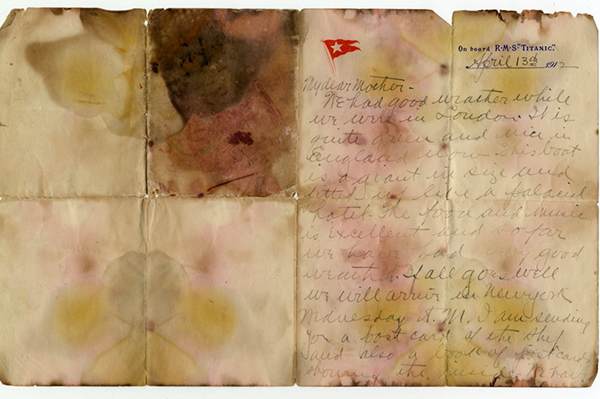 On board R·M·S "TITANIC".
April 13th 1912
My dear Mother-
We had good weather while
we were in London. It is
quite green and nice in
England now. This boat
is a giant in size and
fitted up like a
hotel. The food and music
is excellent and so far
we have had very good
weather. If all goes well
we will arrive in New York
Wednesday A.M. I am sending
you a post card of the ship
and also a book of postcards
showing the inside.